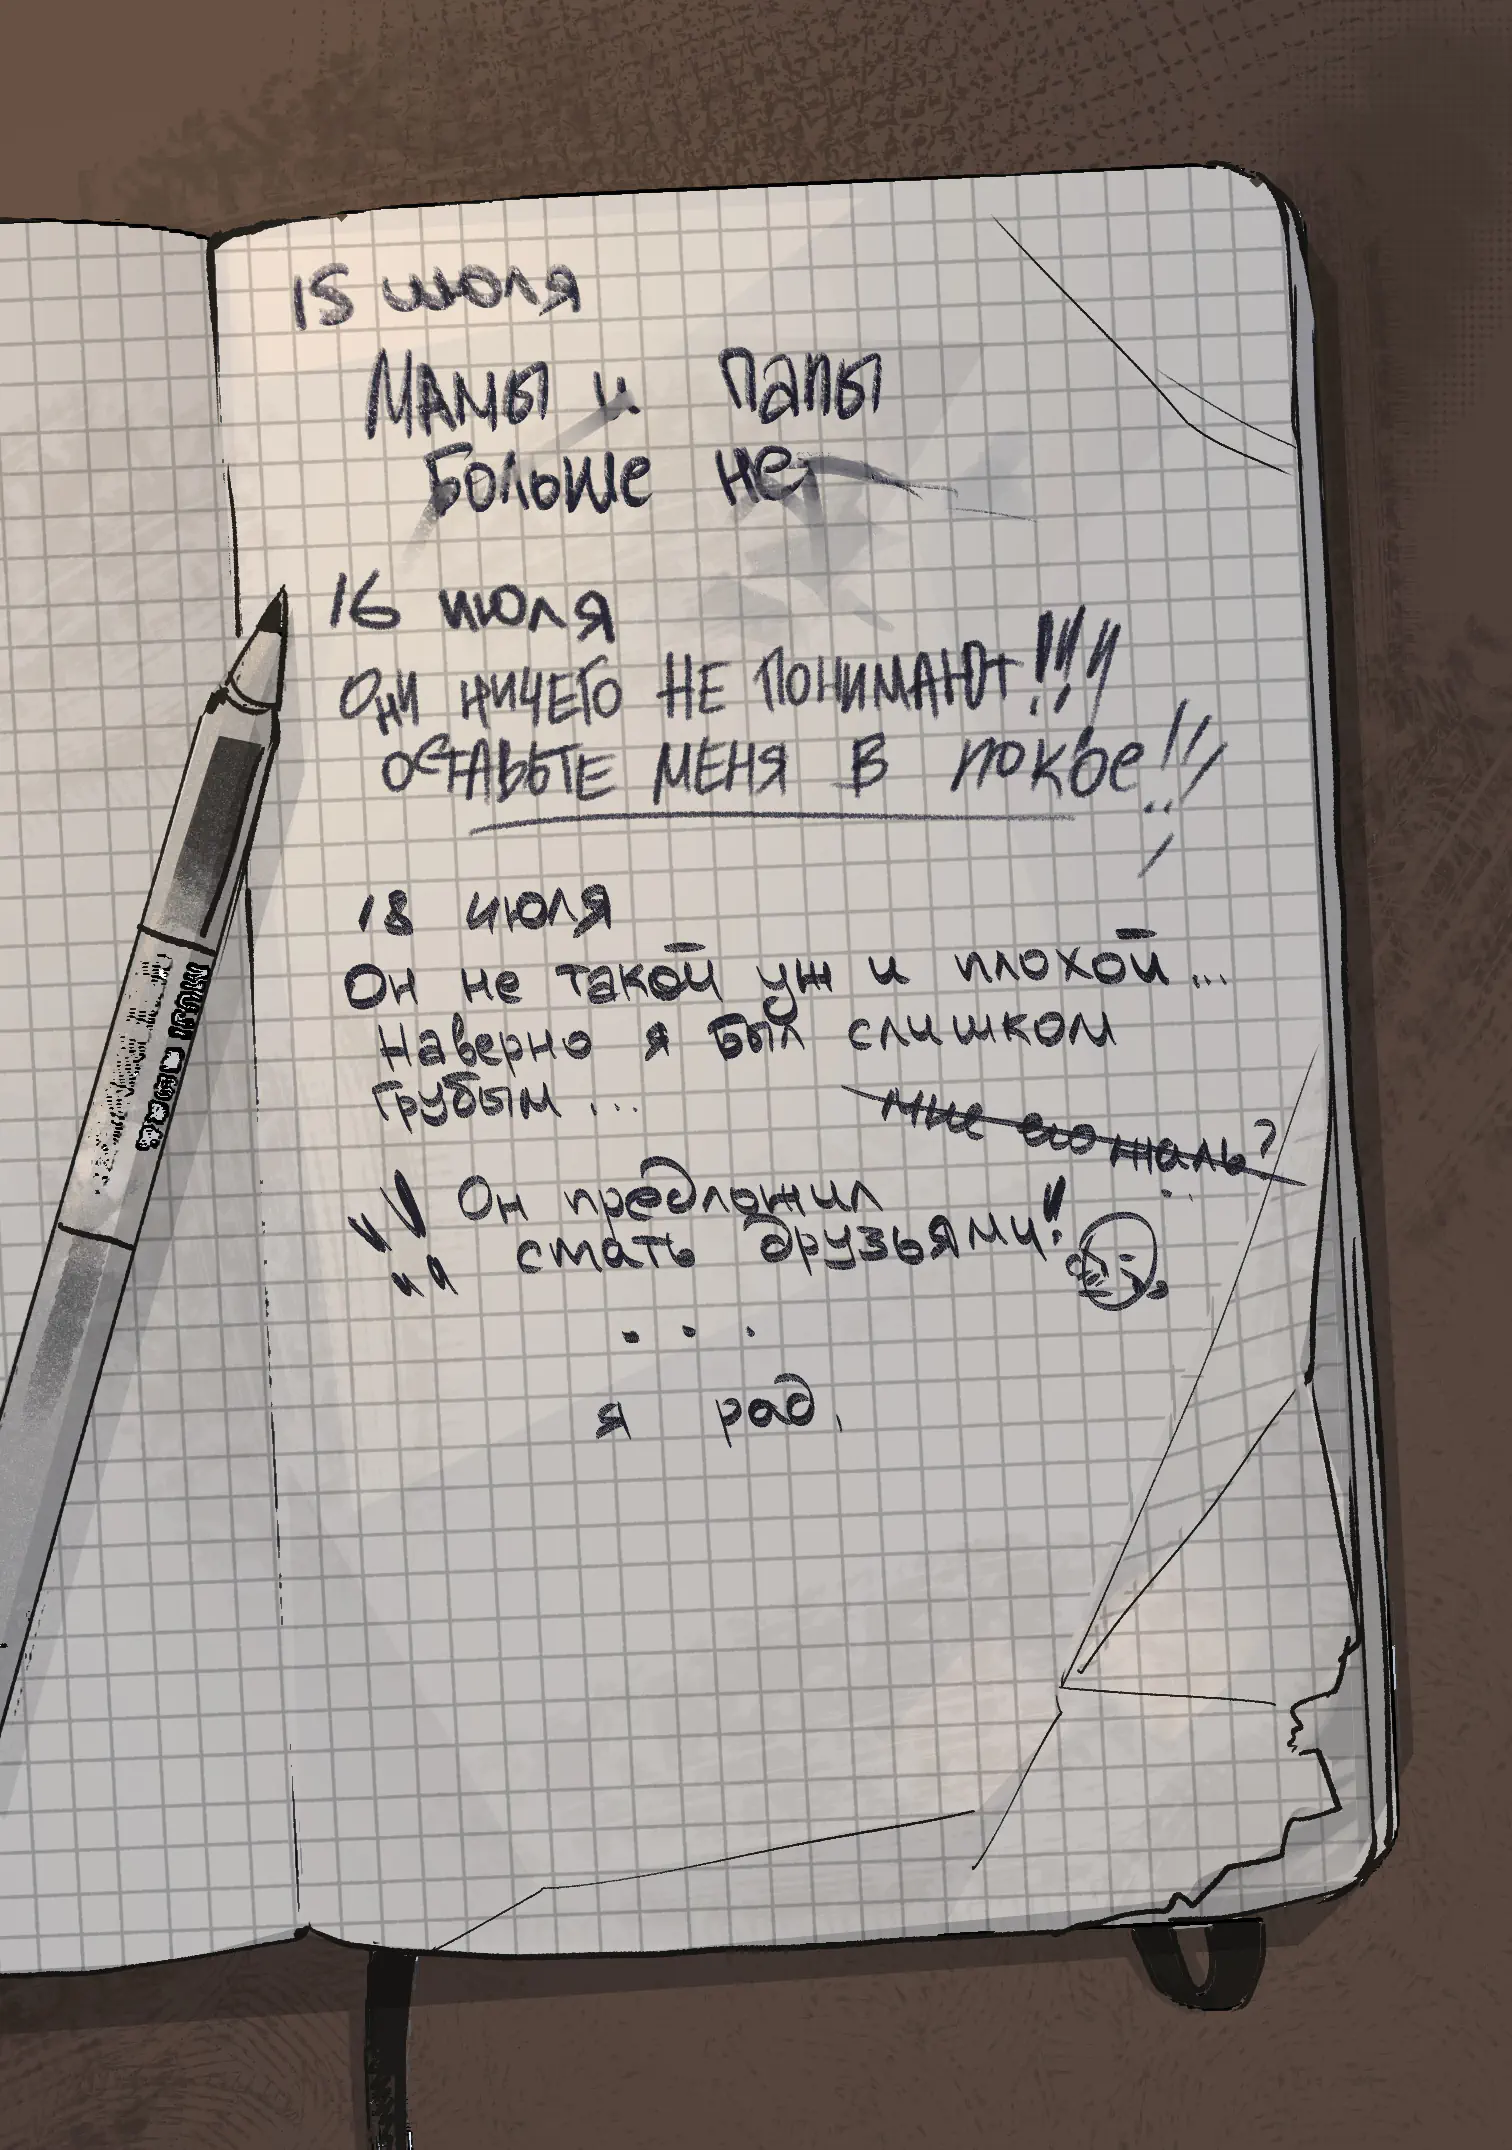 15 июля
Мамы и папы
Больше нет
16 июля
Они ничего НЕ ПОНИМАЮТ!!!!
ОСТАВЬТЕ МЕНЯ В покое!!!
18 июля
Он не такой уж и плохой...
Наверно я был слишком
грубым...
мне его жаль?
Он предложил
стать друзьями!!
...
я рад.